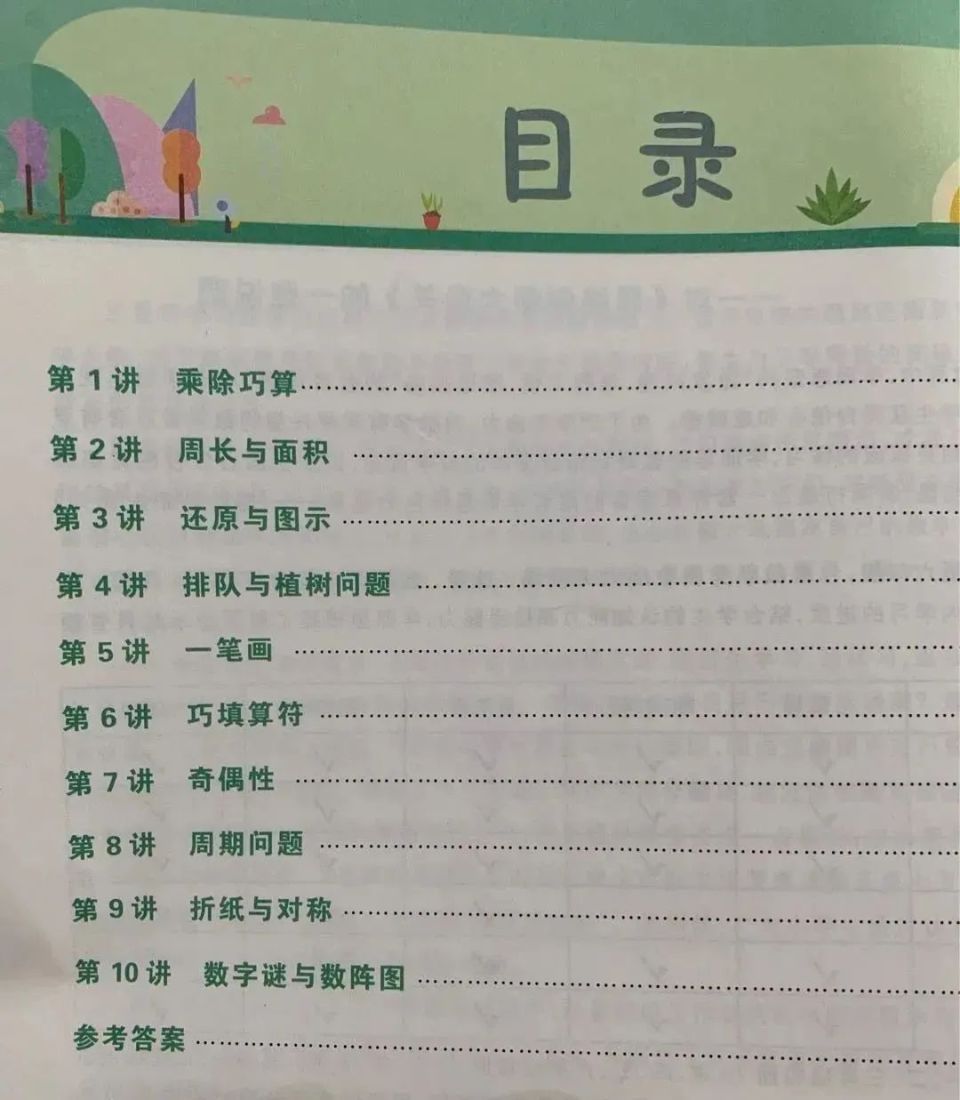 目录
第 1 讲 乘除巧算
第 2 讲 周长与面积
第 3 讲 还原与图示
第 4 讲 排队与植树问题
第 5 讲 一笔画
第 6 讲 巧填算符
第 7 讲 奇偶性
第 8 讲 周期问题
第 9 讲 折纸与对称
第 10 讲 数字谜与数阵图
参考答案